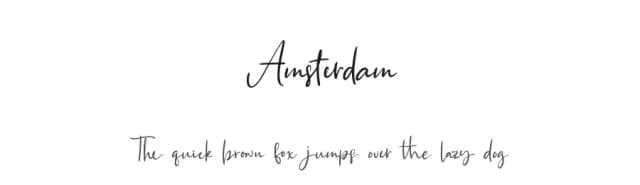 Amsterdam
The quick brown fox jumps over the lazy dog